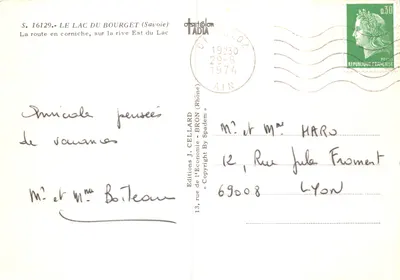 S. 16129.- LE LAC DU BOURGET (Savoie)
La route en corniche, sur la rive Est du Lac
champion
IADIA
19H30
1974
AIN
0,30
REPUBLIQUE FRANCAISE
Amicale pensées
de vacances
Mr et Mme Boiteau
Editions J. CELLARD
13, rue de l'Economie - BRON (Rhône)
« Copyright By Spadem »
Mr et Mme HARO
12, Rue Jula Froment
69008 LYON